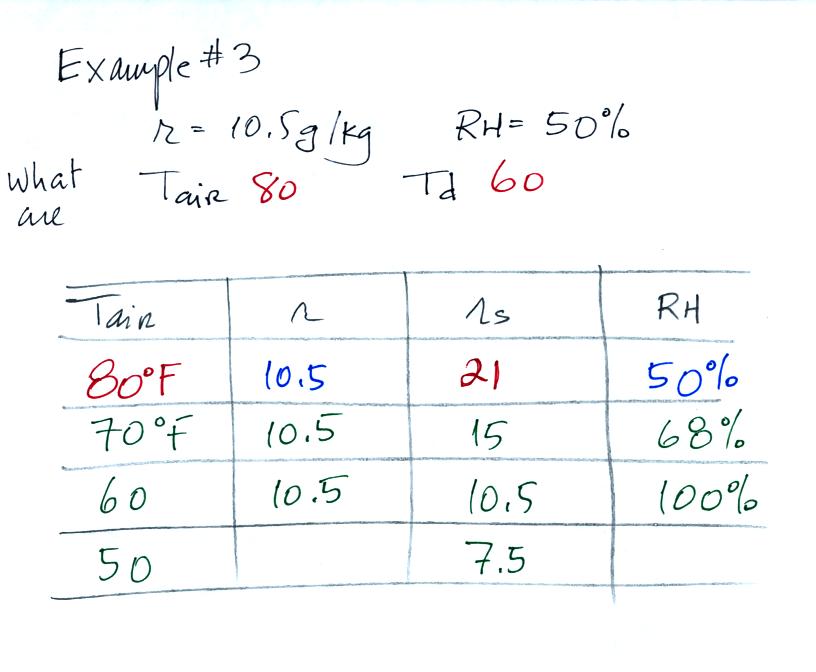 Example #3
r = 10.5 g/kg RH = 50%
what are Tair 80 Td 60
Tair r rs RH
80°F 10.5 21 50%
70°F 10.5 15 68%
60 10.5 10.5 100%
50 7.5